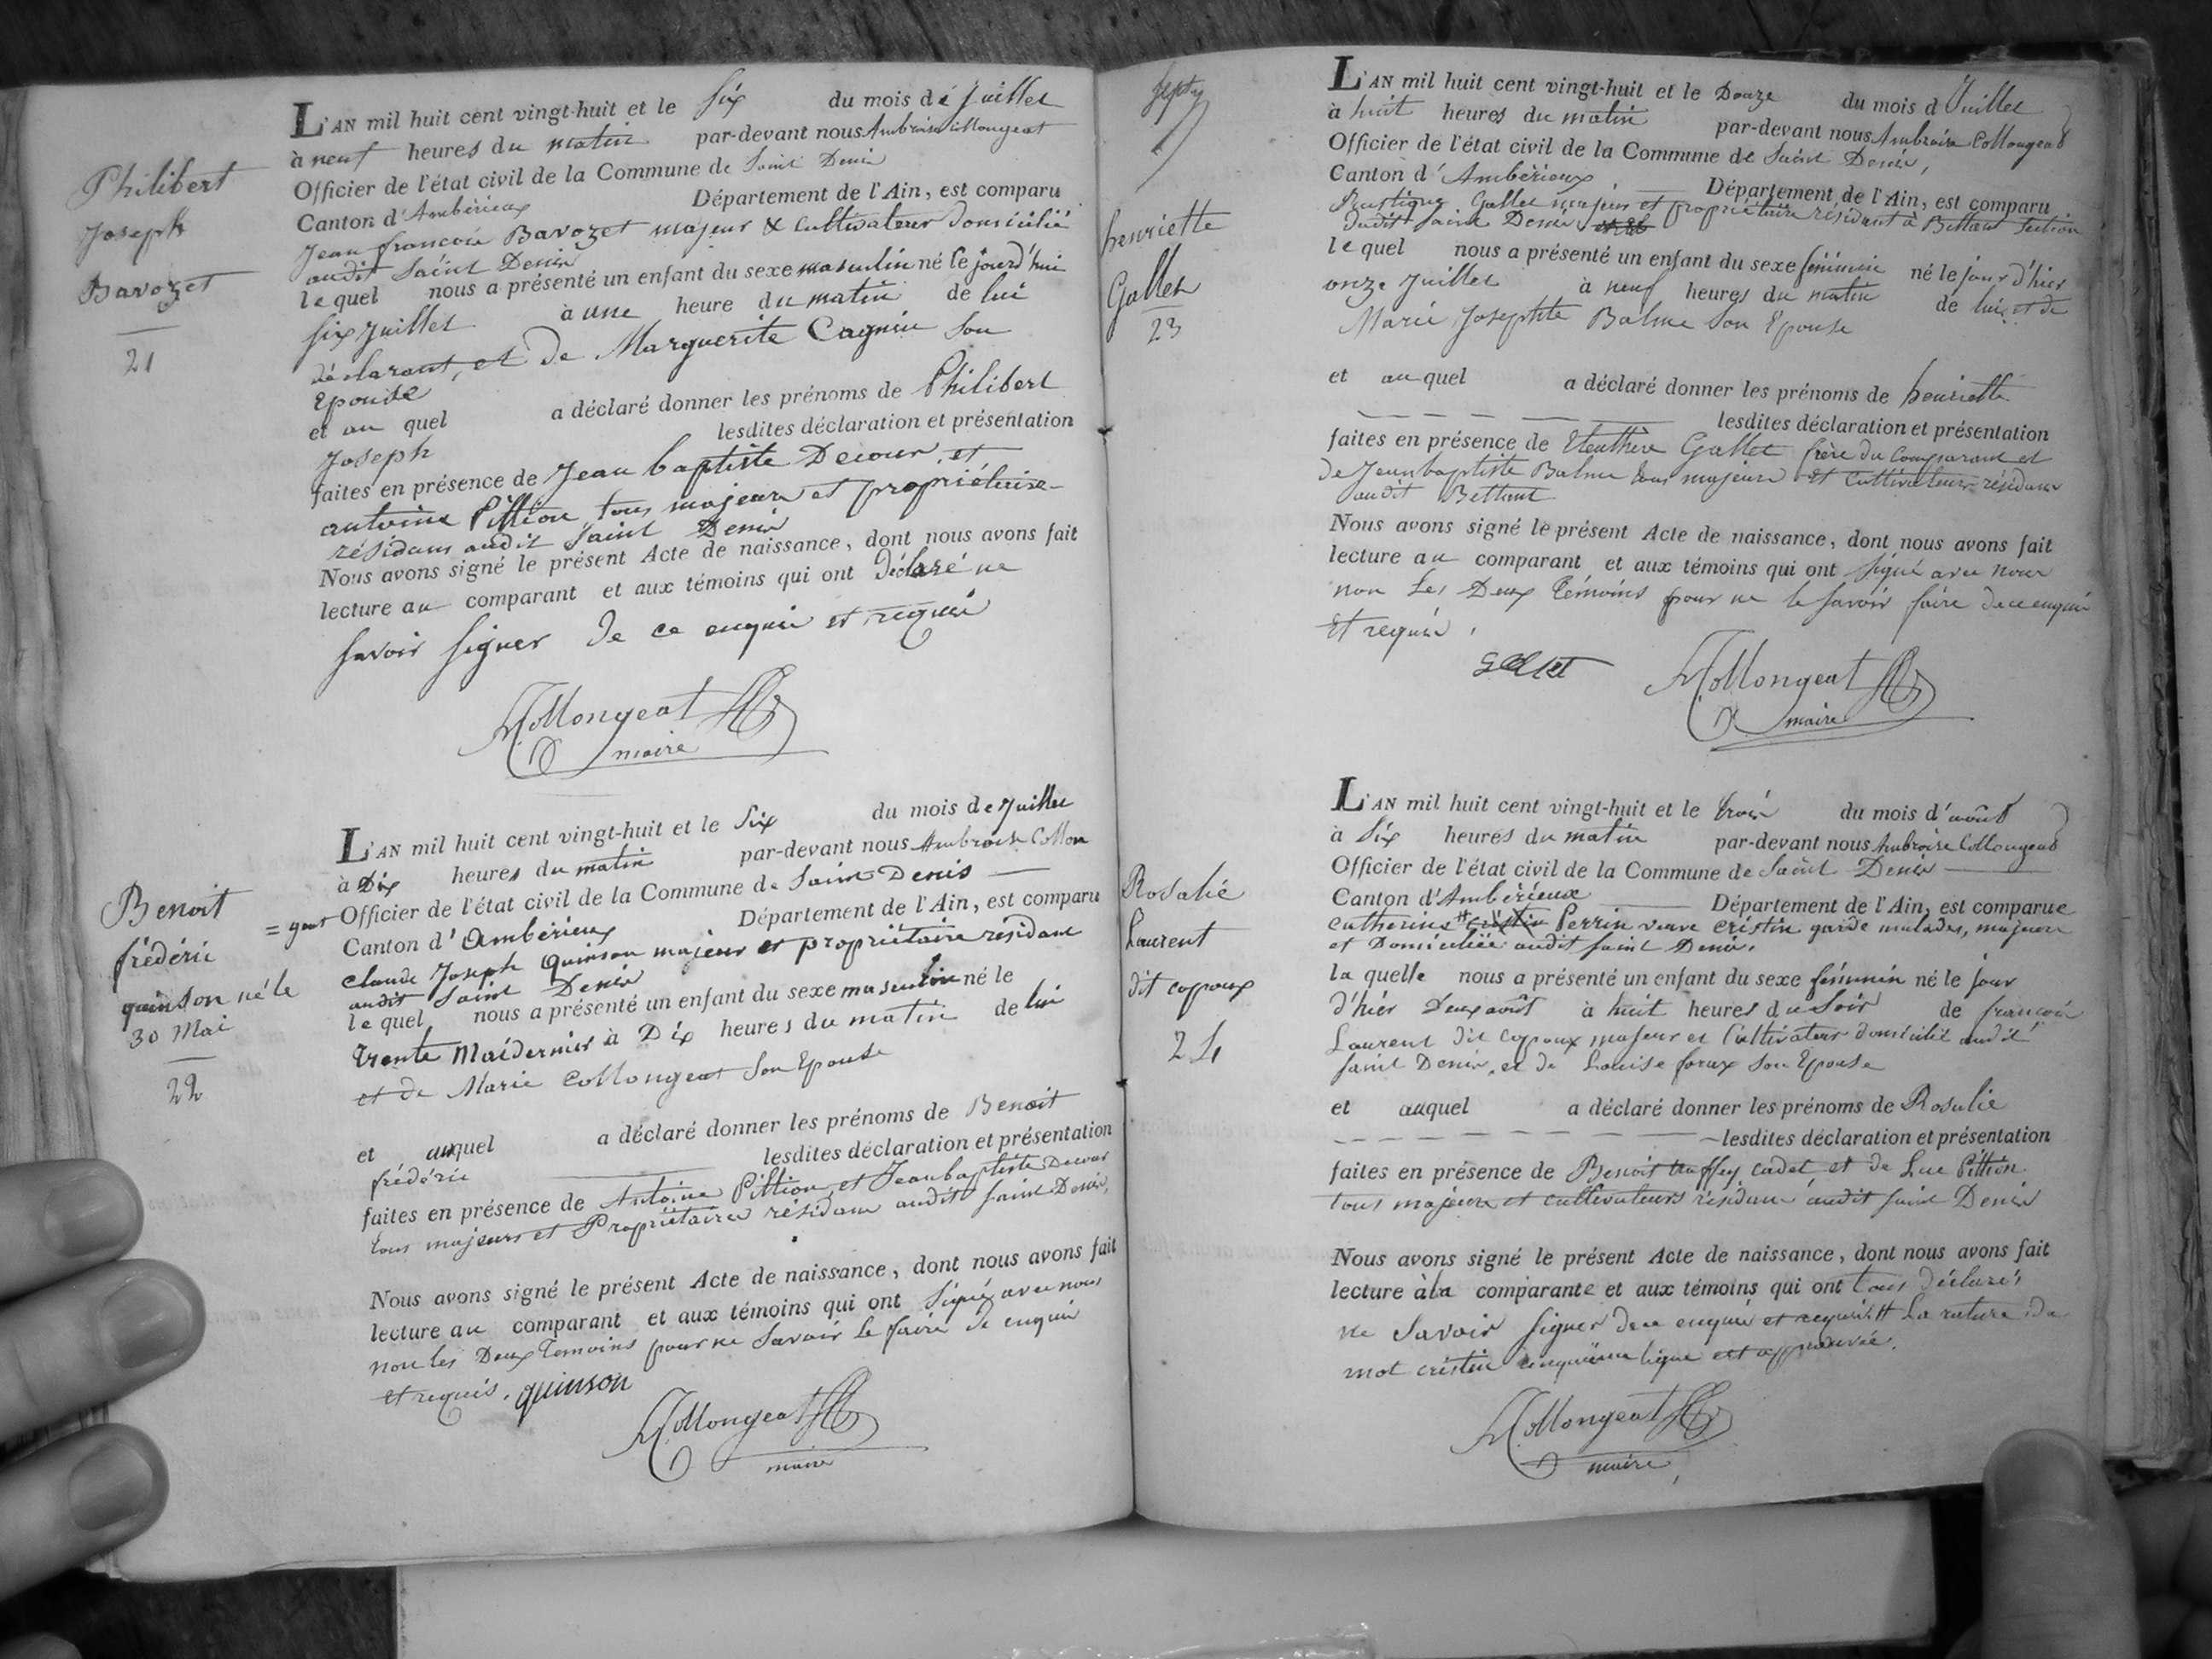 Philibert
Joseph
Bavozet
21
L'AN mil huit cent vingt-huit et le Six du mois de Juillet
à neuf heures du matin par-devant nous Ambroise Collongeat
Officier de l'état civil de la Commune de Saint Denis
Canton d'Ambérieux Département de l'Ain, est comparu
Jean françois Bavozet majeur & Cultivateur domicilié
audit Saint Denis
lequel nous a présenté un enfant du sexe masculin né le jourd'hui
six Juillet à une heure du matin de lui
déclarant, et de Marguerite Cagnin Son
Epouse
et au quel a déclaré donner les prénoms de Philibert
Joseph lesdites déclaration et présentation
faites en présence de Jean baptiste Decour, et
antoine Pittion tous majeurs et propriétaires
résidans audit Saint Denis
Nous avons signé le présent Acte de naissance, dont nous avons fait
lecture au comparant et aux témoins qui ont déclaré ne
savoir signer de ce enquis et requis
Collongeat
maire
Benoit
frédéric
quinson né le
30 Mai
22
L'AN mil huit cent vingt-huit et le Six du mois de Juillet
à Dix heures du matin par-devant nous Ambroise Collon
= geat Officier de l'état civil de la Commune de Saint Denis
Canton d'Ambérieux Département de l'Ain, est comparu
Claude Joseph Quinson majeur et propriétaire résidant
audit Saint Denis
lequel nous a présenté un enfant du sexe masculin né le
trente Mai dernier à Dix heures du matin de lui
et de Marie Collongeat Son Epouse
et auquel a déclaré donner les prénoms de Benoit
frédéric lesdites déclaration et présentation
faites en présence de Antoine Pittion, et Jean baptiste Decour
tous majeurs et Propriétaires résidans audit Saint Denis,
Nous avons signé le présent Acte de naissance, dont nous avons fait
lecture au comparant et aux témoins qui ont Signé avec nous
non les Deux Témoins pour ne Savoir le faire de enquis
et requis. quinson
Collongeat
maire
henriette
Gallet
23
L'AN mil huit cent vingt-huit et le Douze du mois d Juillet
à huit heures du matin par-devant nous Ambroise Collongeat
Officier de l'état civil de la Commune de Saint Denis,
Canton d'Ambérieux Département de l'Ain, est comparu
Rustique Gallet majeur et propriétaire résidant à Bettant Section
dudit Saint Denis
lequel nous a présenté un enfant du sexe féminin né le jour d'hier
onze Juillet à neuf heures du matin de lui et de
Marie Josephte Balme Son Epouse
et auquel a déclaré donner les prénoms de henriette
lesdites déclaration et présentation
faites en présence de Eleuthère Gallet frère du Comparant et
de Jean baptiste Balme tous majeurs et Cultivateurs résidans
audit Bettant
Nous avons signé le présent Acte de naissance, dont nous avons fait
lecture au comparant et aux témoins qui ont Signé avec nous
non Les Deux Témoins pour ne le Savoir faire de ce enquis
et requis,
Gallet
Collongeat
maire
Rosalie
Laurent
dit copoux
24
L'AN mil huit cent vingt-huit et le trois du mois d'août
à Six heures du matin par-devant nous Ambroise Collongeat
Officier de l'état civil de la Commune de Saint Denis
Canton d'Ambérieux Département de l'Ain, est comparue
Catherine # cristin Perrin veuve Cristin garde malades, majeure
et Domiciliée audit Saint Denis,
la quelle nous a présenté un enfant du sexe féminin né le jour
d'hier Deux août à huit heures du Soir de françois
Laurent dit copoux majeur et Cultivateur domicilié audit
Saint Denis, et de Louise foray Son Epouse
et auquel a déclaré donner les prénoms de Rosalie
lesdites déclaration et présentation
faites en présence de Benoit truffey cadet et de Luc Pittion
tous majeurs et cultivateurs résidans audit Saint Denis
Nous avons signé le présent Acte de naissance, dont nous avons fait
lecture à la comparante et aux témoins qui ont tous déclarés
ne Savoir signer de ce enquis et requis # La rature du
mot cristin cinquième ligne est approuvée.
Collongeat
maire